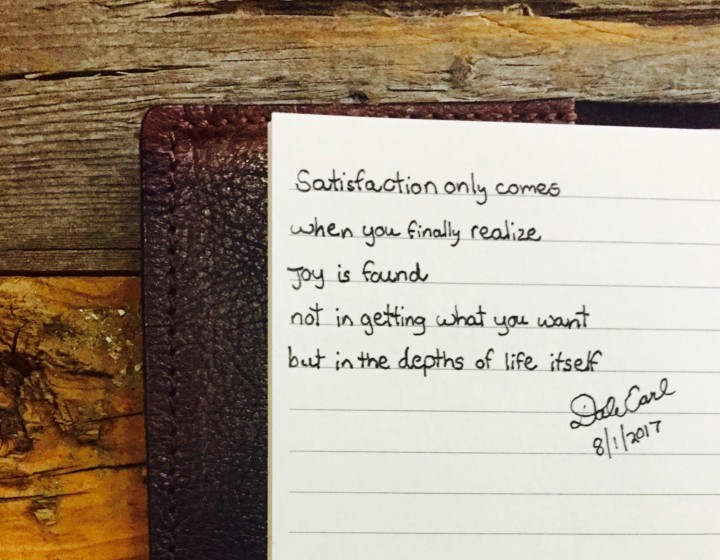 Satisfaction only comes
when you finally realize
Joy is found
not in getting what you want
but in the depths of life itself
Dale Earl
8/1/2017